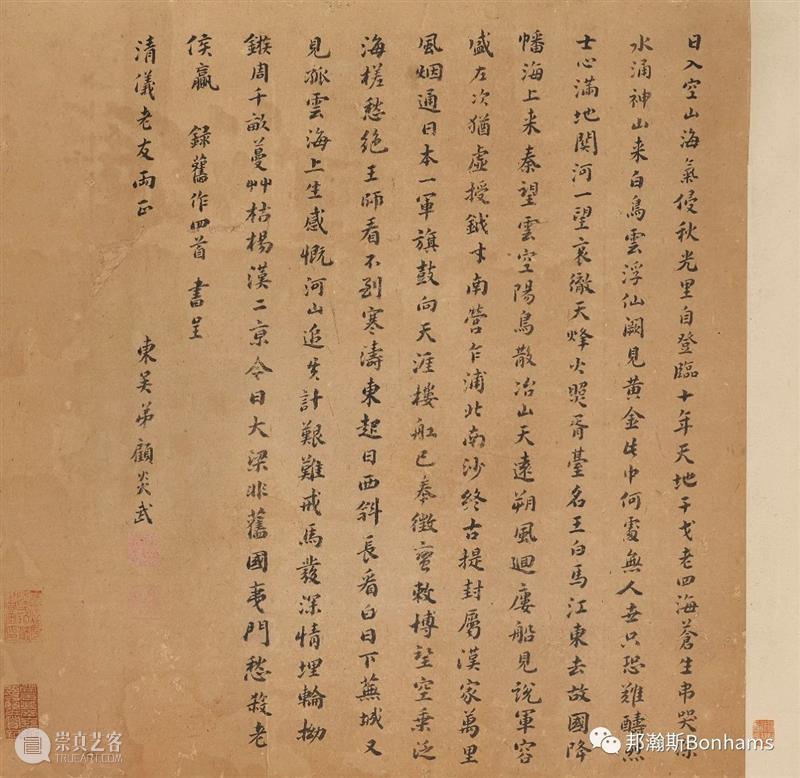 日入空山海氣侵秋光里自登臨十年天地干戈老四海蒼生弔哭深
水涌神山来白鳥雲浮仙闕見黄金此中何處無人世只恐難酬烈
士心滿地關河一望哀徹天烽火照胥臺名王白馬江東去故國降
幡海上来秦望雲空陽鳥散冶山天遠朔風迴廔船見說軍容
盛左次猶虛授鉞才南營乍浦北南沙終古提封屬漢家萬里
風烟通日本一軍旗鼓向天涯樓舡已奉徵蠻敕博望空乗泛
海槎愁絶王師看不到寒濤東起日西斜長看白日下蕪城又
見孤雲海上生感慨河山追失計艱難戎馬發深情埋輪拗
鏃周千畝蔓艸枯楊漢二京今日大梁非舊國夷門愁殺老
侯嬴 録舊作四首書呈
清儀老友兩正
東吴弟顧炎武
崇真艺客
TRUEART.COM
邦瀚斯Bonhams